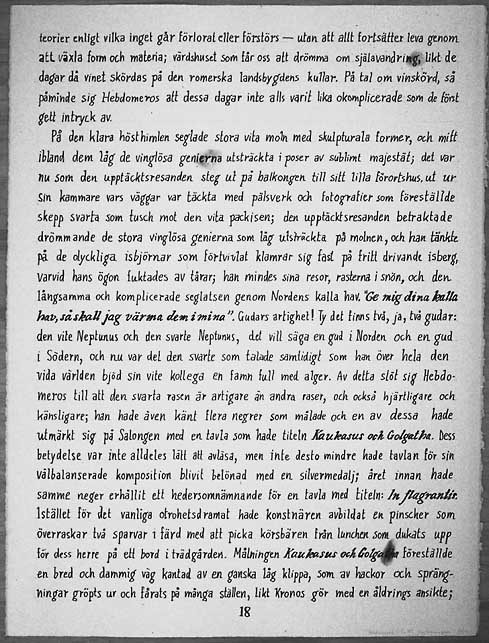 teorier enligt vilka inget går förlorat eller förstörs — utan att allt fortsätter leva genom
att växla form och materia; värdshuset som får oss att drömma om själavandring, likt de
dagar då vinet skördas på den romerska landsbygdens kullar. På tal om vinskörd, så
påminde sig Hebdomeros att dessa dagar inte alls varit lika okomplicerade som de först
gett intryck av.
På den klara hösthimlen seglade stora vita moln med skulpturala former, och mitt
ibland dem låg de vinglösa genierna utsträckta i poser av sublimt majestät; det var
nu som den upptäcktsresanden steg ut på balkongen till sitt lilla förortshus, ut ur
sin kammare vars väggar var täckta med pälsverk och fotografier som föreställde
skepp svarta som tusch mot den vita packisen; den upptäcktsresanden betraktade
drömmande de stora vinglösa genierna som låg utsträckta på molnen, och han tänkte
på de olyckliga isbjörnar som förtvivlat klamrar sig fast på fritt drivande isberg,
varvid hans ögon fuktades av tårar; han mindes sina resor, rasterna i snön, och den
långsamma och komplicerade seglatsen genom Nordens kalla hav. "Ge mig dina kalla
hav, så skall jag värma dem i mina". Gudars artighet! Ty det finns två, ja, två gudar:
den vite Neptunus och den svarte Neptunus, det vill säga en gud i Norden och en gud
i Södern, och nu var det den svarte som talade samtidigt som han över hela den
vida världen bjöd sin vite kollega en famn full med alger. Av detta slöt sig Hebdo-
meros till att den svarta rasen är artigare än andra raser, och också hjärtligare och
känsligare; han hade även känt flera negrer som målade och en av dessa hade
utmärkt sig på Salongen med en tavla som hade titeln Kaukasus och Golgatha. Dess
betydelse var inte alldeles lätt att avläsa, men inte desto mindre hade tavlan för sin
välbalanserade komposition blivit belönad med en silvermedalj; året innan hade
samme neger erhållit ett hedersomnämnande för en tavla med titeln: In flagrantir.
Istället för det vanliga otrohetsdramat hade konstnären avbildat en pinscher som
överraskar två sparvar i färd med att picka körsbären från lunchen som dukats upp
för dess herre på ett bord i trädgården. Målningen Kaukasus och Golgatha föreställde
en bred och dammig väg kantad av en ganska låg klippa, som av hackor och spräng-
ningar gröpts ur och fårats på många ställen, likt Kronos gör med en åldrings ansikte;
18